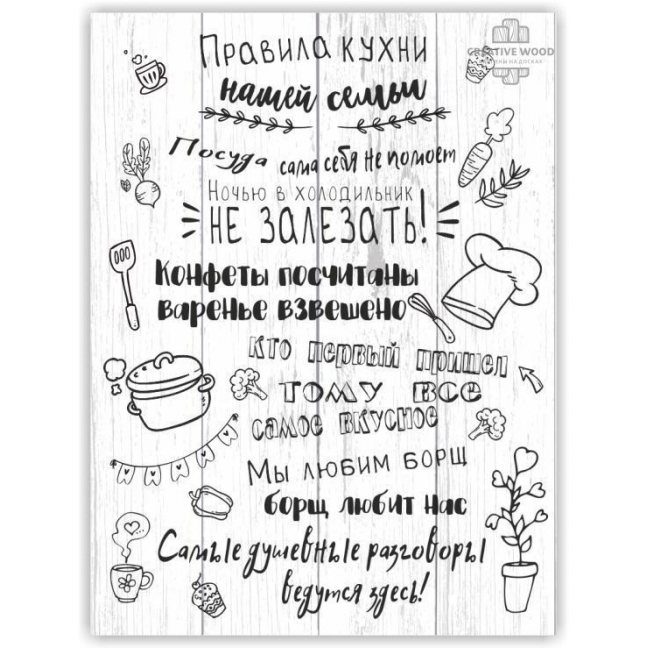 Правила кухни
нашей семьи
CREATIVE WOOD
КАРТИНЫ НА ДОСКАХ
Посуда сама себя не помоет
Ночью в холодильник
НЕ ЗАЛЕЗАТЬ!
Конфеты посчитаны
варенье взвешено
кто первый пришел
тому все
самое вкусное
Мы любим борщ
борщ любит нас
Самые душевные разговоры
ведутся здесь!